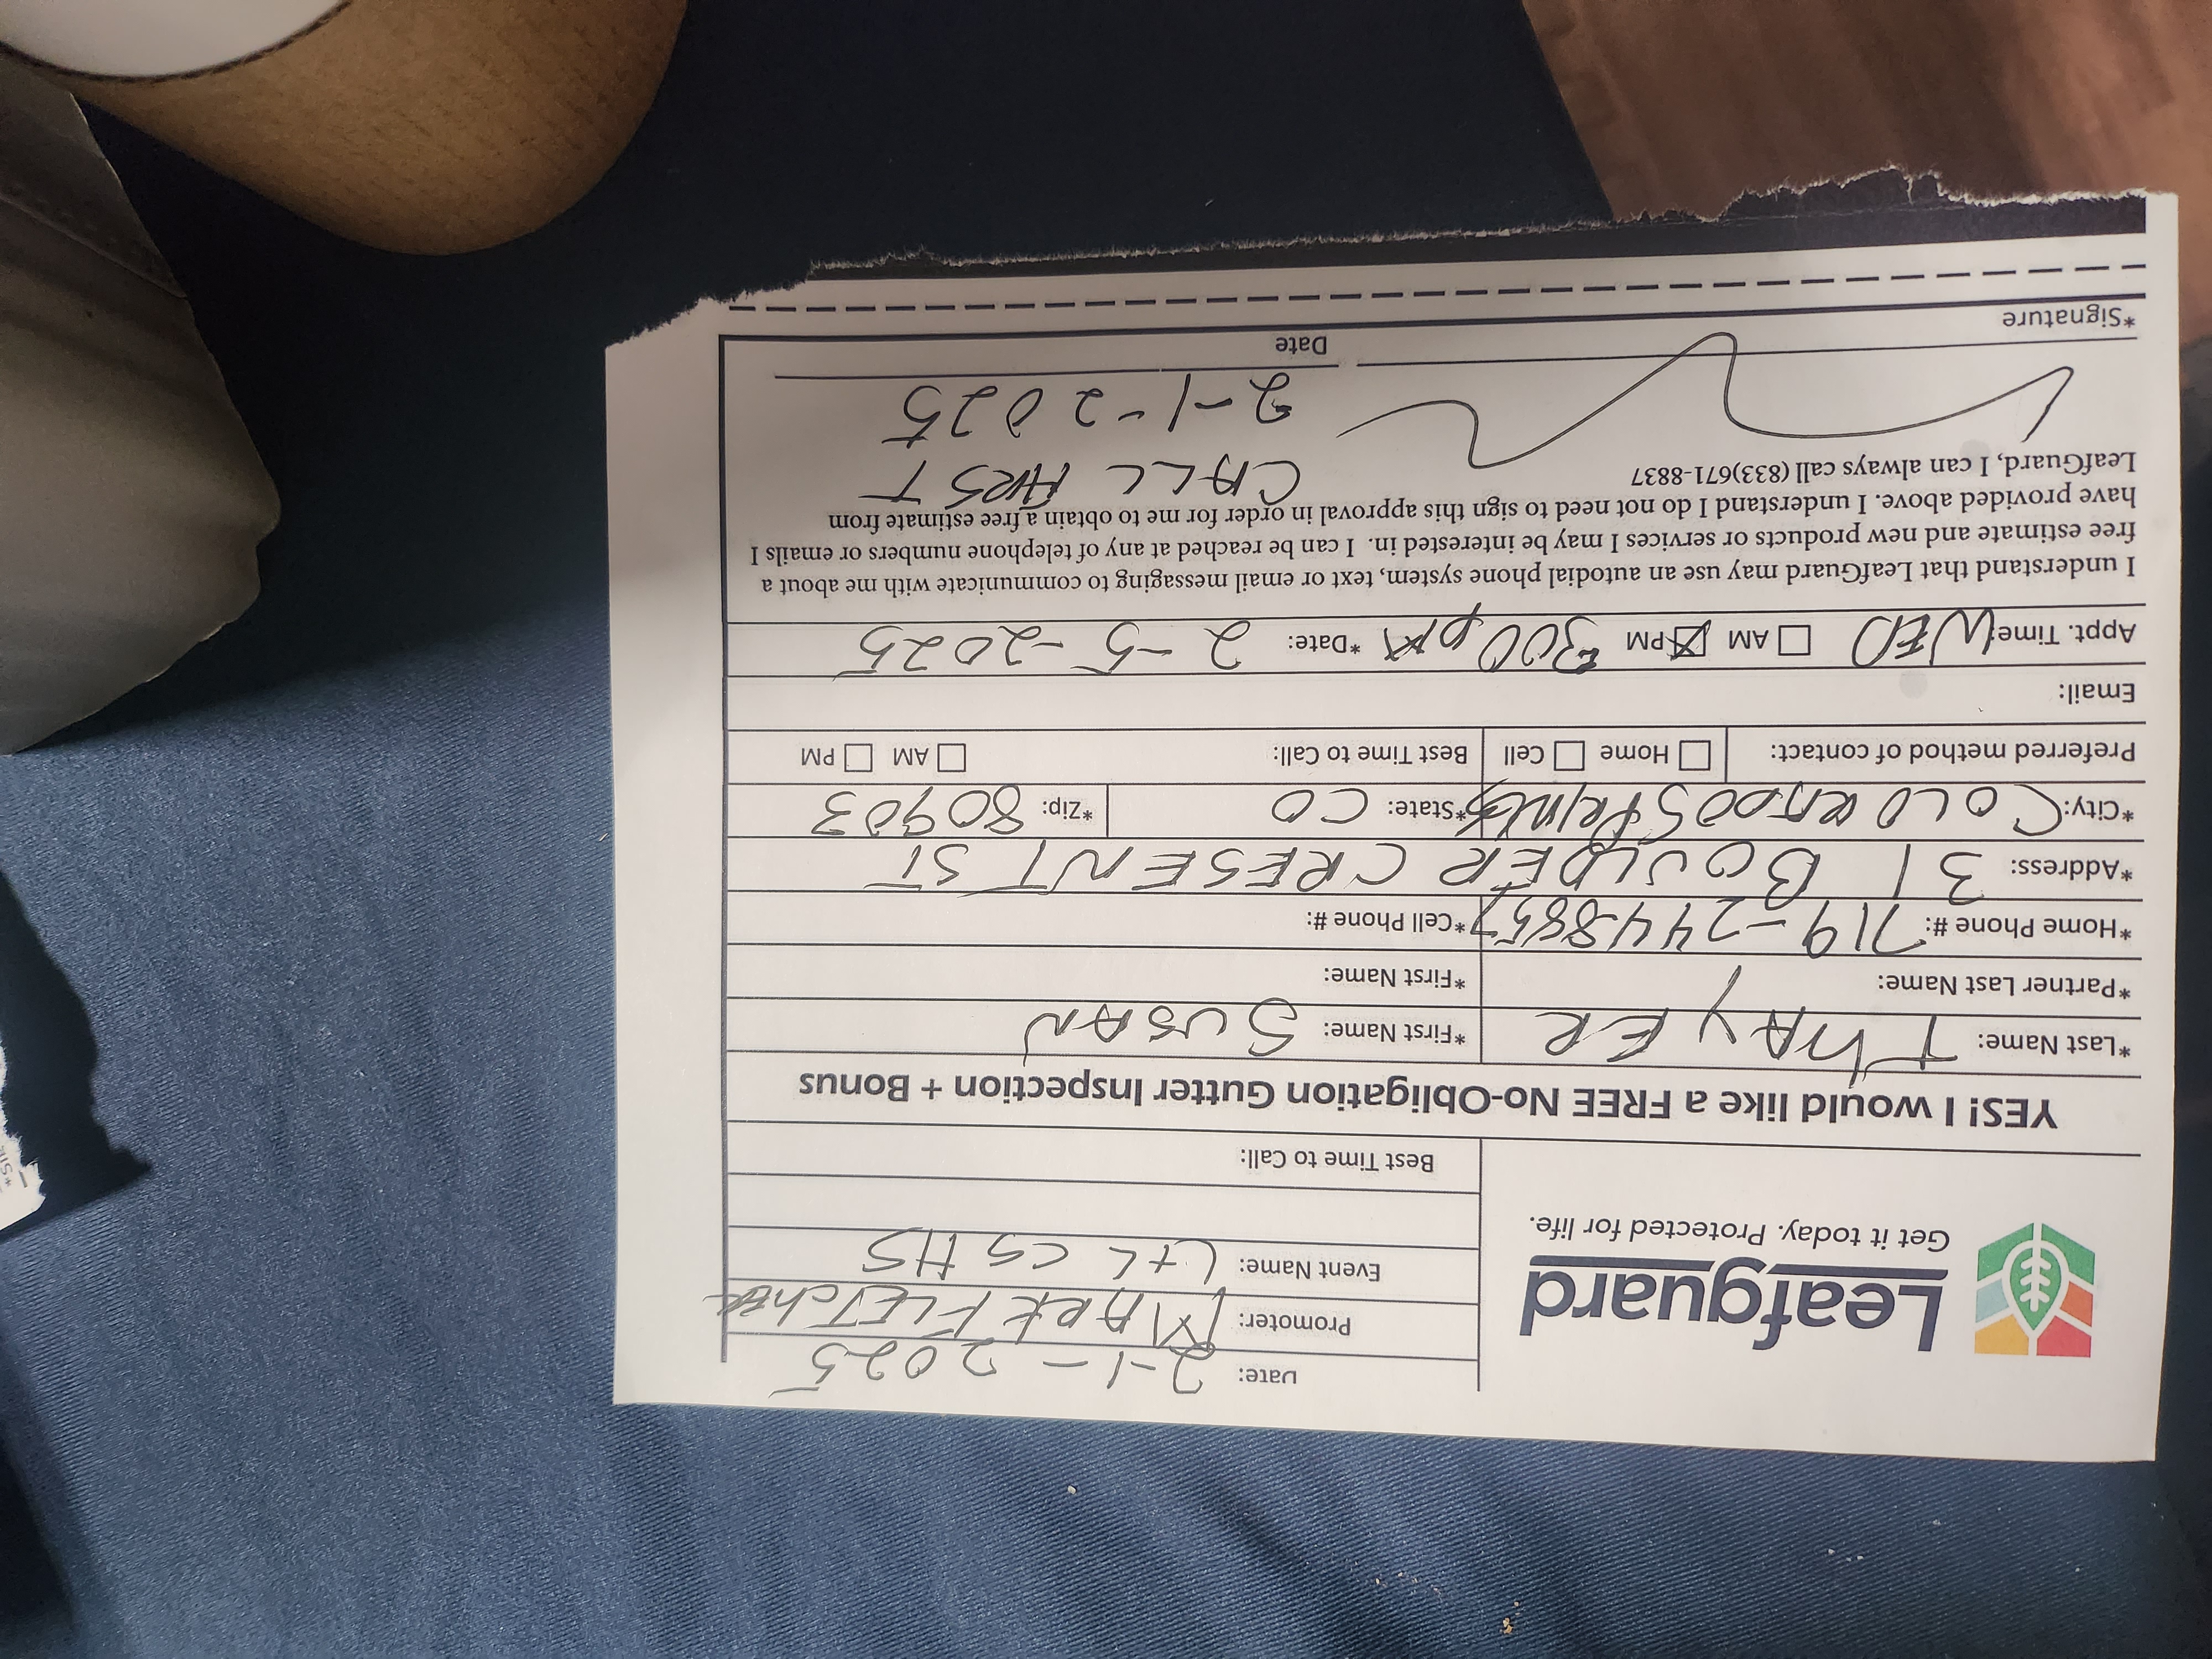 Leafguard
Get it today. Protected for life.
Date: 2-1-2025
Promoter: MARK FLETCHER
Event Name: L+L CS HS
Best Time to Call:
YES! I would like a FREE No-Obligation Gutter Inspection + Bonus
*Last Name: THAYER *First Name: SUSAN
*Partner Last Name: *First Name:
*Home Phone #: 719-244-8857 *Cell Phone #:
*Address: 31 BOULDER CRESENT ST
*City: COLORADO SPRINGS *State: CO *Zip: 80903
Preferred method of contact: Home Cell Best Time to Call: AM PM
Email:
Appt. Time: WED AM PM 300 PM *Date: 2-5-2025
I understand that LeafGuard may use an autodial phone system, text or email messaging to communicate with me about a
free estimate and new products or services I may be interested in. I can be reached at any of telephone numbers or emails I
have provided above. I understand I do not need to sign this approval in order for me to obtain a free estimate from
LeafGuard, I can always call (833)671-8837
CALL
2-1-2025
*Signature Date